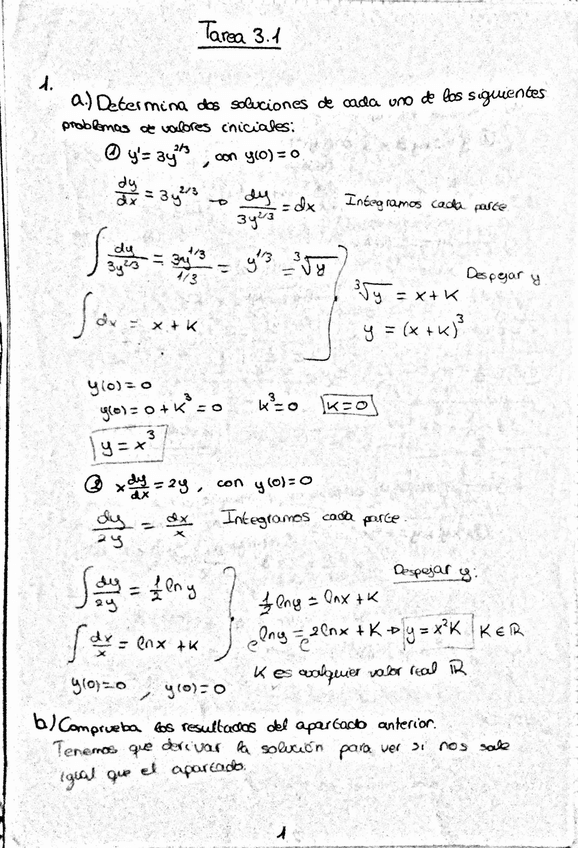 Tarea 3.1
1.
a.) Determina dos soluciones de cada uno de los siguientes
problemas de valores iniciales:
① y' = 3y^{2/3}, con y(0)=0
dy/dx = 3y^{2/3} → dy/3y^{2/3} = dx Integramos cada parte
∫ dy/3y^{2/3} = 3y^{1/3}/1/3 = y^{1/3} = ∛y
∫ dx = x + K
Despejar y
∛y = x + K
y = (x + K)^3
y(0) = 0
y(0) = 0 + K^3 = 0 K^3 = 0 K = 0
y = x^3
② x dy/dx = 2y, con y(0)=0
dy/2y = dx/x Integramos cada parte.
∫ dy/2y = 1/2 ln y
∫ dx/x = ln x + K
y(0)=0, y(0)=0
Despejar y:
1/2 ln y = ln x + K
e^{ln y} = e^{2 ln x + K} → y = x^2 K K ∈ ℝ
K es cualquier valor real ℝ
b) Comprueba los resultados del apartado anterior.
Tenemos que derivar la solución para ver si nos sale
igual que el apartado.
1